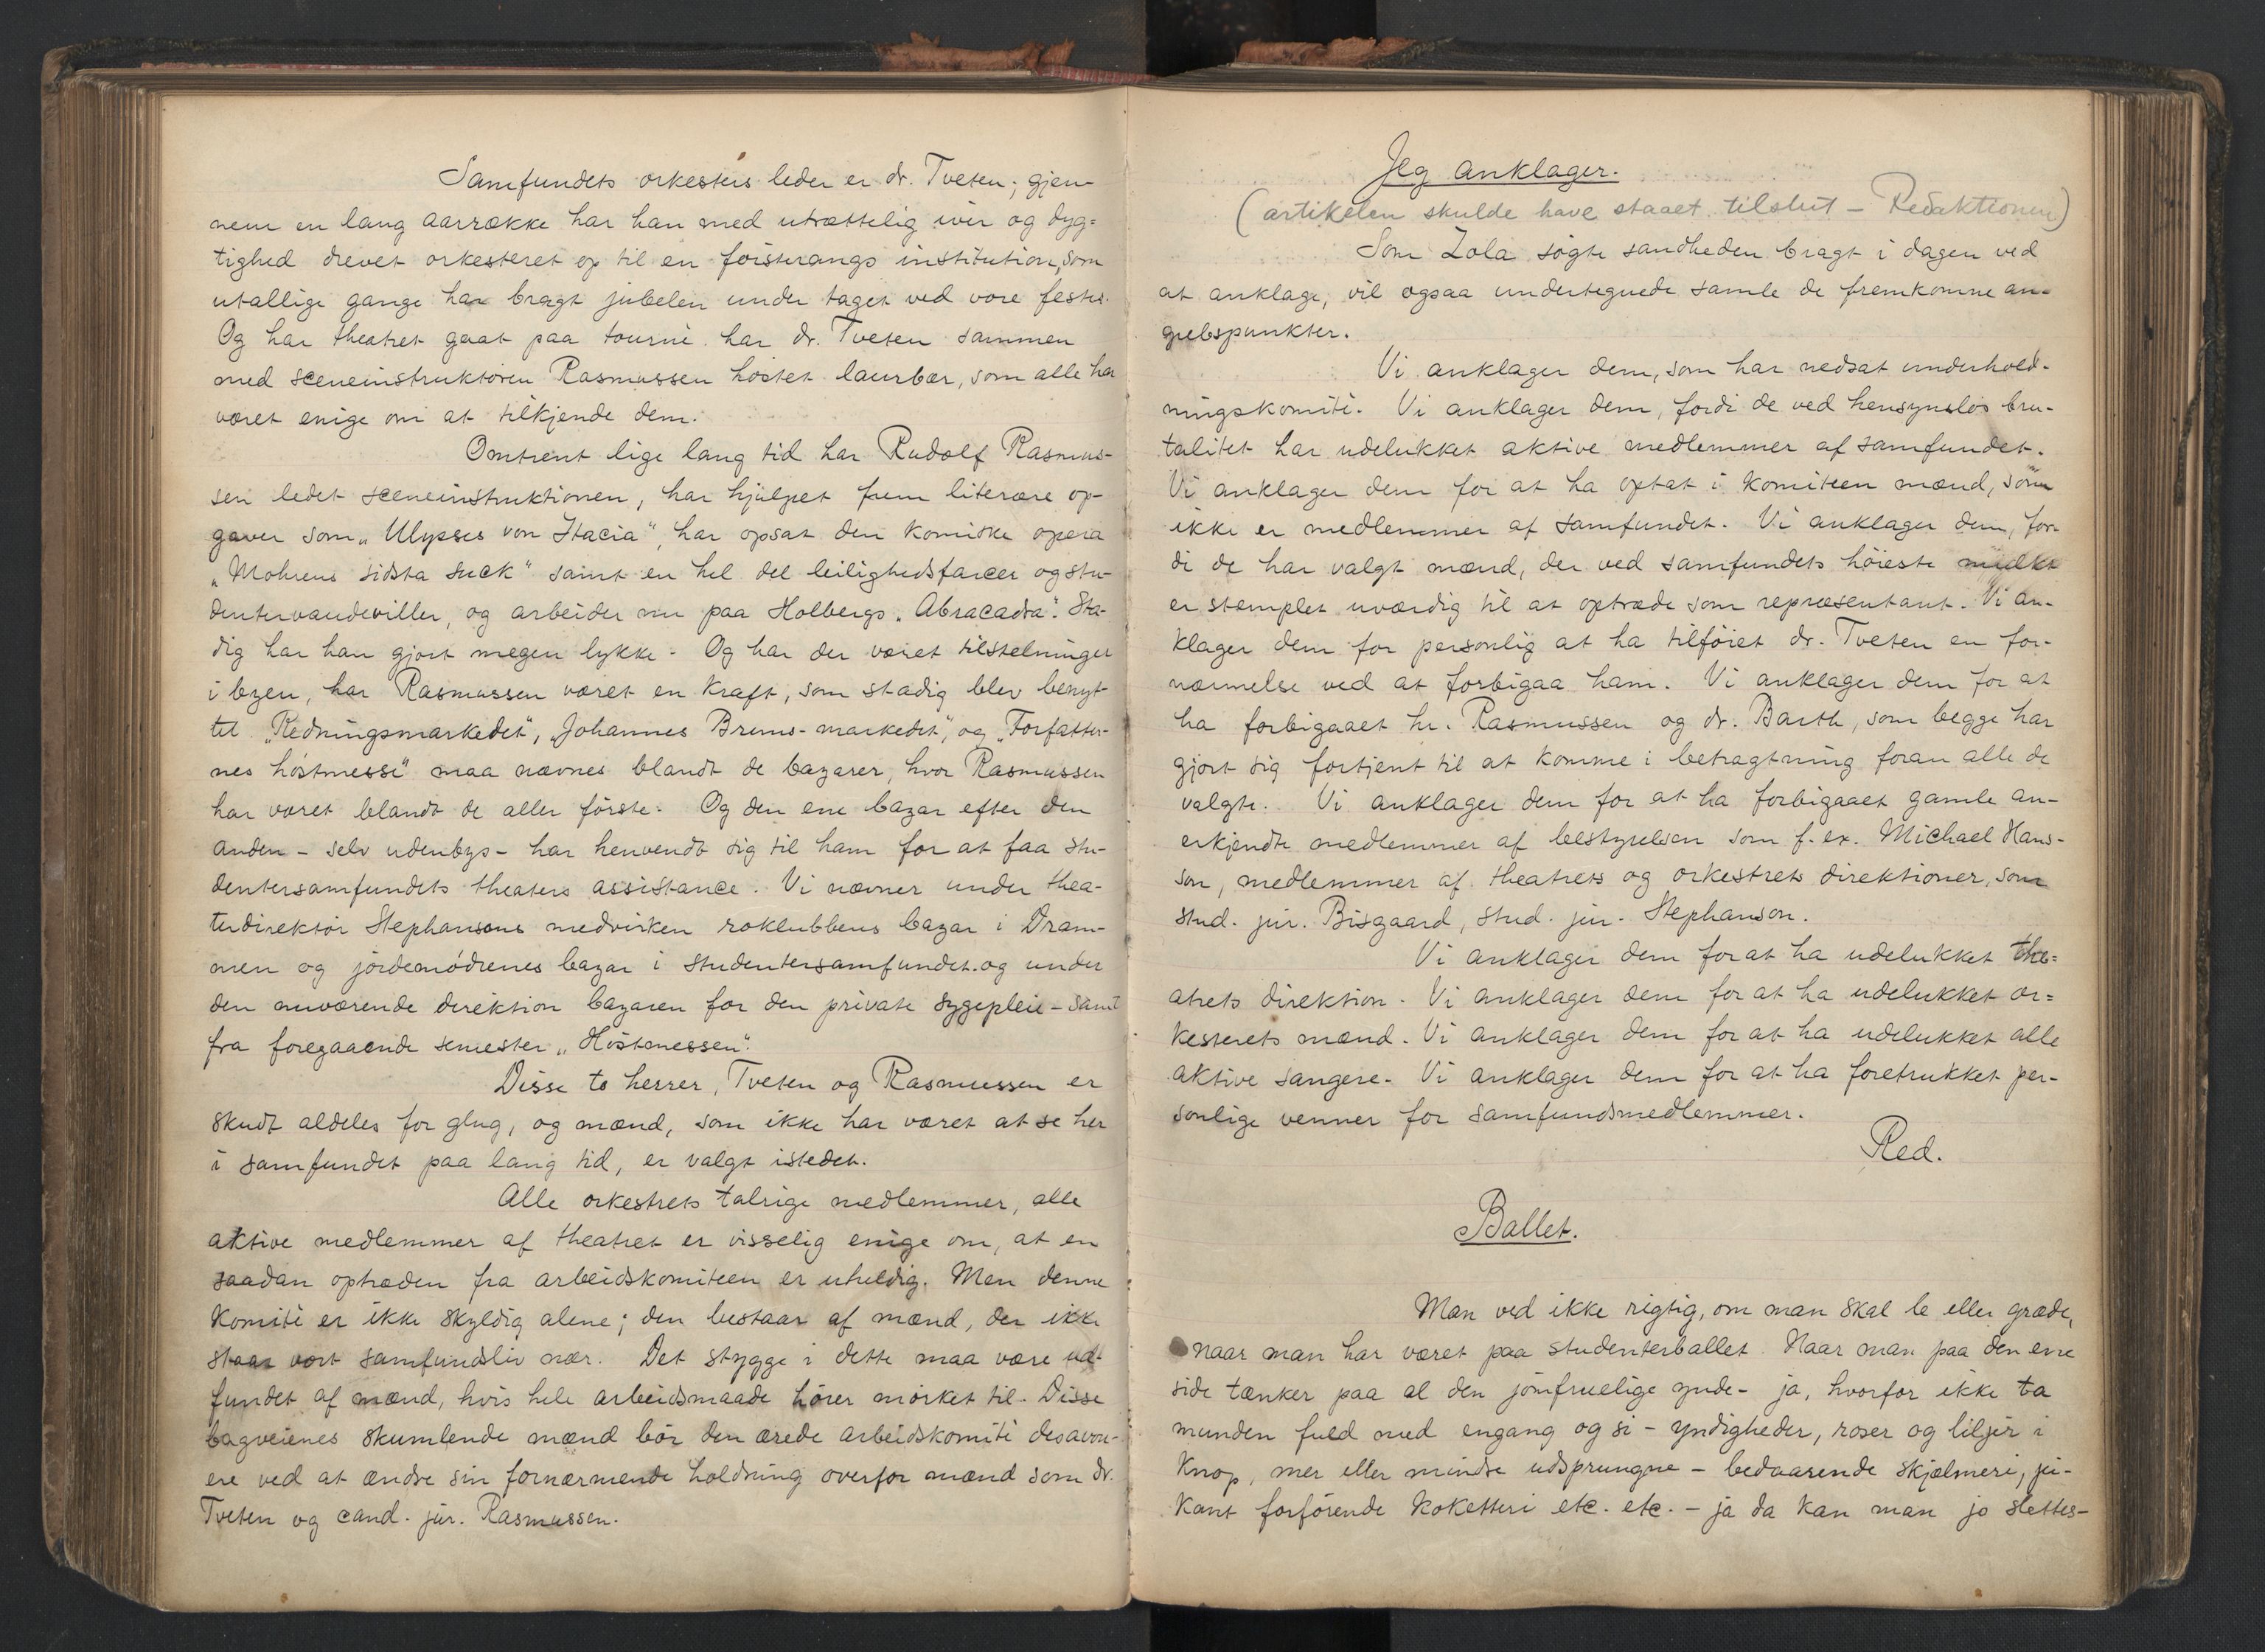 Samfundets orkesters leder er dr. Tveten; gjen-
nem en lang aarrække har han med utrættelig iver og dyg=
tighed drevet orkesteret op til en försterangs institution, som
utallige gange har bragt jubelen under taget ved vore fester.
Og har theatret gaat paa tourné har dr. Tveten sammen
med sceneinstruktören Rasmussen höstet laurbær, som alle har
været enige om at tilkjende dem.
Omtrent lige lang tid har Rudolf Rasmus-
sen ledet sceneinstruktionen, har hjulpet frem literære op-
gaver som „Ulysses von Itacia", har opsat den komiske opera
„Mohrens sidsta suck" samt en hel del leilighedsfarcer og stu-
dentervaudeviller, og arbeider nu paa Holbergs „Abracadra". Sta-
dig har han gjort megen lykke. Og har der været tilstelninger
i byen, har Rasmussen været en kraft, som stadig blev benyt-
tet. „Redningsmarkedet", „Johannes Bruns-markedet", og „Forfatter-
nes höstmesse" maa nævnes blandt de bazarer, hvor Rasmussen
har været blandt de aller förste. Og den ene bazar efter den
anden - selv udenbys - har henvendt sig til ham for at faa stu-
dentersamfundets theaters assistance. Vi nævner under thea-
terdirektör Stephansons medvirken roklubbens bazar i Dram-
men og jordemödrenes bazar i studentersamfundet og under
den nuværende direktion bazaren for den private sygepleie - samt
fra foregaaende semester „Höstmessen".
Disse to herrer, Tveten og Rasmussen er
skudt aldeles for glug, og mænd, som ikke har været at se her
i samfundet paa lang tid, er valgt istedet.
Alle orkestrets talrige medlemmer, alle
aktive medlemmer af theatret er visselig enige om, at en
saadan optræden fra arbeidskomiteen er uheldig. Men denne
komité er ikke skyldig alene; den bestaar af mænd, der ikke
staar vort samfundsliv nær. Det stygge i dette maa være ud-
fundet af mænd, hvis hele arbeidsmaade hörer mörket til. Disse
bagveienes skumlende mænd bör den ærede arbeidskomité desavou-
ere ved at ændre sin fornærmende holdning overfor mænd som dr.
Tveten og cand. jur. Rasmussen.
Jeg anklager.
(artikelen skulde have staaet tilslut - Redaktionen)
Som Zola sögte sandheden bragt i dagen ved
at anklage, vil ogsaa undertegnede samle de fremkomne an-
grebspunkter.
Vi anklager dem, som har nedsat underhold-
ningskomité. Vi anklager dem, fordi de ved hensynslös bru-
talitet har udelukket aktive medlemmer af samfundet.
Vi anklager dem for at ha optat i komiteen mænd, som
ikke er medlemmer af samfundet. Vi anklager dem, for-
di de har valgt mænd, der ved samfundets höieste mulkt
er stemplet uværdig til at optræde som repræsentant. Vi an-
klager dem for personlig at ha tilföiet dr. Tveten en for-
nærmelse ved at forbigaa ham. Vi anklager dem for at
ha forbigaaet hr. Rasmussen og dr. Barth, som begge har
gjort sig fortjent til at komme i betragtning foran alle de
valgte. Vi anklager dem for at ha forbigaaet gamle an-
erkjendte medlemmer af bestyrelsen som f. ex. Michael Hans-
son, medlemmer af theatrets og orkestrets direktioner, som
stud. jur. Bisgaard, stud. jur. Stephanson.
Vi anklager dem for at ha udelukket the=
atrets direktion. Vi anklager dem for at ha udelukket or=
kesterets mænd. Vi anklager dem for at ha udelukket alle
aktive sangere. Vi anklager dem for at ha foretrukket per-
sonlige venner for samfundsmedlemmer.
Red.
Ballet.
Man ved ikke rigtig, om man skal le eller græde,
naar man har været paa studenterballet. Naar man paa den ene
side tænker paa al den jomfruelige ynde - ja, hvorfor ikke ta
munden fuld med engang og si - yndigheder, roser og liljer i
knop, mer eller mindre udsprungne - bedaarende skjælmeri, pi-
kant forförende koketteri etc. etc. - ja da kan man jo slettes-